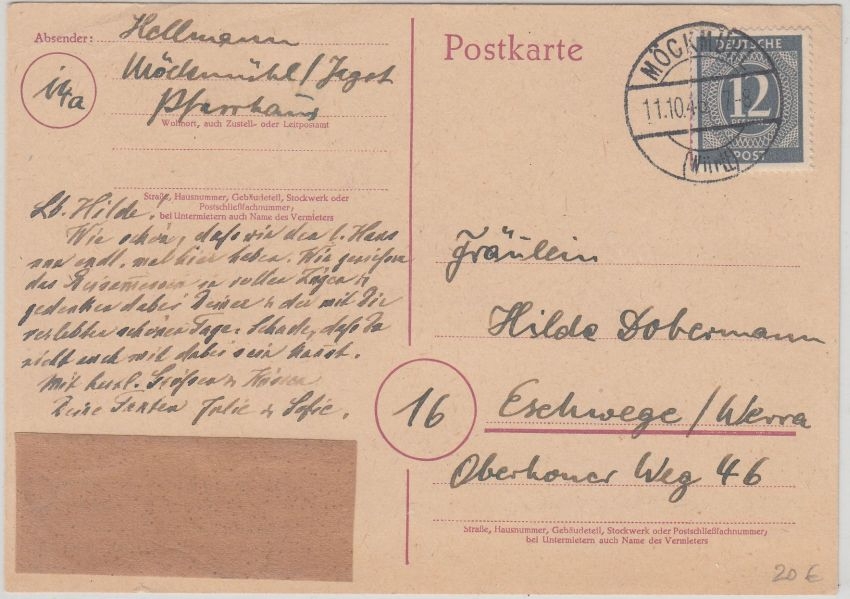 Absender: Hellmann
14a
Möckmühl/Jagst
Pfarrhaus
Wohnort, auch Zustell- oder Leitpostamt
Straße, Hausnummer, Gebäudeteil, Stockwerk oder
Postschließfachnummer;
bei Untermietern auch Name des Vermieters
Lb. Hilde!
Wie schön, daß wir den l. Hans
nun endl. mal hier haben. Wir genießen
das in vollen Zügen &
gedenken dabei Deiner & der mit Dir
verlebten schönen Tage. Schade, daß Du
nicht auch mit dabei sein kannst.
Mit herzl. Grüßen & Küssen
Deine Tanten Julie & Sofie.
Postkarte
MÖCKMÜHL
11.10.4
(Württ)
DEUTSCHE
12
PFENNIG
POST
Fräulein
Hilde Dobermann
16
Eschwege/Werra
Oberhoner Weg 46
Straße, Hausnummer, Gebäudeteil, Stockwerk oder Postschließfachnummer;
bei Untermietern auch Name des Vermieters
20 €